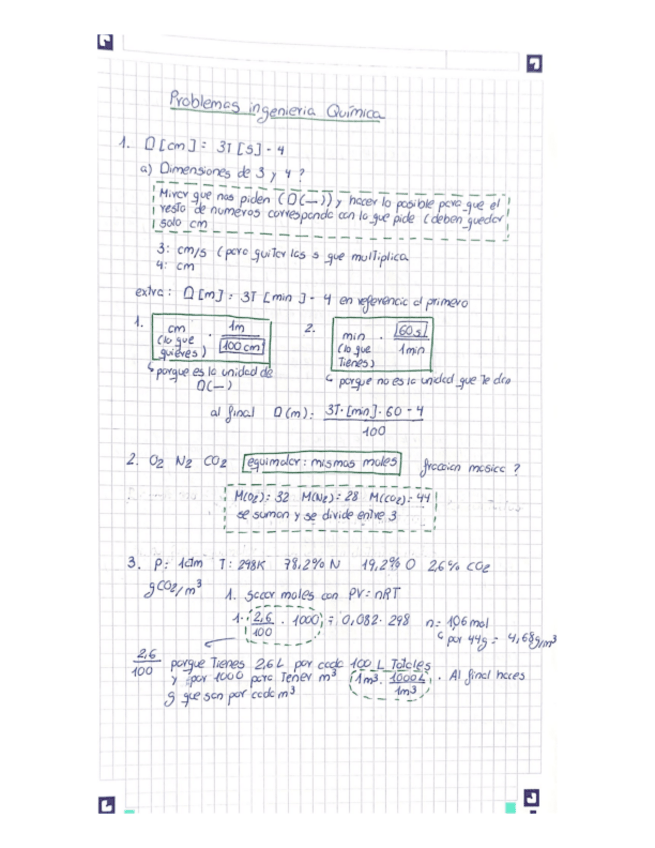 Problemas ingenieria Química
1. D [cm] = 3T [s] - 4
a) Dimensiones de 3 y 4 ?
Mirar que nos piden (D(—)) y hacer lo posible para que el
resto de numeros corresponda con lo que pide (deben quedar
solo cm
3: cm/s (para quitar las s que multiplica
4: cm
extra: D [m] = 3T [min] - 4 en referencia al primero
1. cm (lo que quieres) · 1m / 100 cm 2. min (lo que Tienes) · 60 s / 1min
↳ porque es la unidad de D(—) ↳ porque no es la unidad que te dan
al final D(m): 3T·[min]·60 - 4 / 100
2. O2 N2 CO2 equimolar: mismos moles fraccion masica ?
M(O2): 32 M(N2): 28 M(CO2): 44
se suman y se divide entre 3
3. P: 1atm T: 298K 78,2% N 19,2% O 2,6% CO2
g CO2/m³ 1. sacar moles con PV = nRT
1 · 2,6/100 · 1000 = 0,082 · 298 n = 106 mol
↳ por 44g = 4,68g/m³
2,6/100 porque Tienes 2,6 L por cada 100 L Totales
y por 1000 para Tener m³ (1m³ · 1000L / 1m³). Al final haces
g que son por cada m³